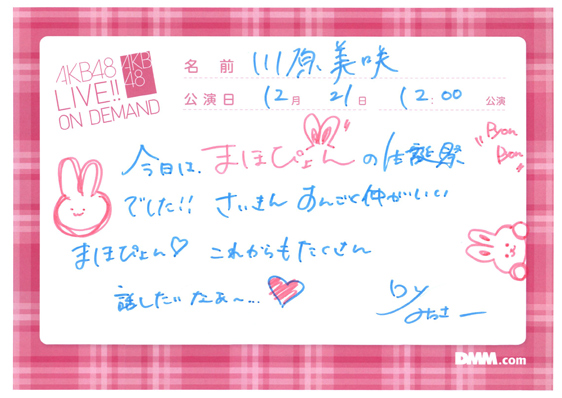 AKB48
LIVE!!
ON DEMAND
AKB
48
名前 川原美咲
公演日 12月 21日 12:00 公演
今日は、まほぴょんの生誕祭
"Pyon
Pyon"
でした!! さいきん あんごと仲がいい
まほぴょん♡ これからもたくさん
話したいなぁ〜...
by
みさきー
DMM.com